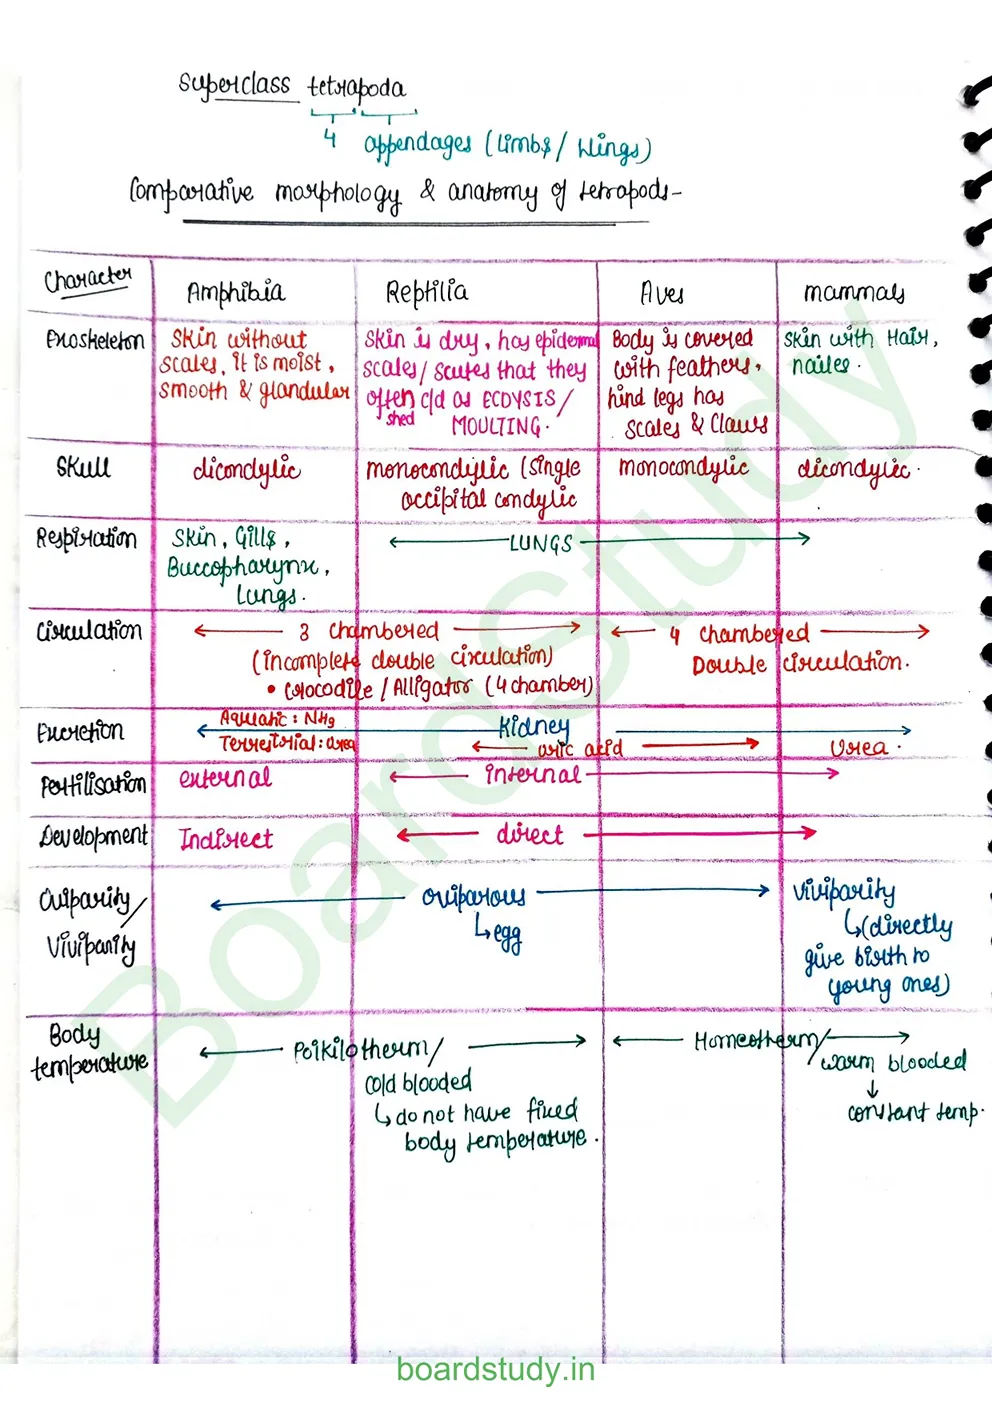 Superclass tetrapoda
4 appendages (Limbs / Wings)
Comparative morphology & anatomy of tetrapods-
Character
Amphibia
Reptilia
Aves
mammals
Exoskeleton
Skin without
scales, it is moist,
smooth & glandular
Skin is dry, has epidermal
scales/ scutes that they
often c/d as ECDYSIS /
shed MOULTING.
Body is covered
with feathers,
hind legs has
scales & Claws
Skin with Hair,
nailes.
Skull
dicondylic
monocondylic (single
occipital condylic
monocondylic
dicondylic.
Respiration
Skin, Gills,
Buccopharynx,
Lungs.
LUNGS
Circulation
3 chambered
(incomplete double circulation)
• Crocodile / Alligator (4 chamber)
4 chambered
Double circulation.
Excretion
Aquatic : NH3
Terrestrial : urea
Kidney
uric acid
Urea.
Fertilisation
external
internal
Development
Indirect
direct
Oviparity/
Viviparity
oviparous
egg
Viviparity
(directly
give birth to
young ones)
Body
temperature
Poikilotherm/
cold blooded
do not have fixed
body temperature.
Homeotherm/
warm blooded
constant temp.
BoardStudy
boardstudy.in